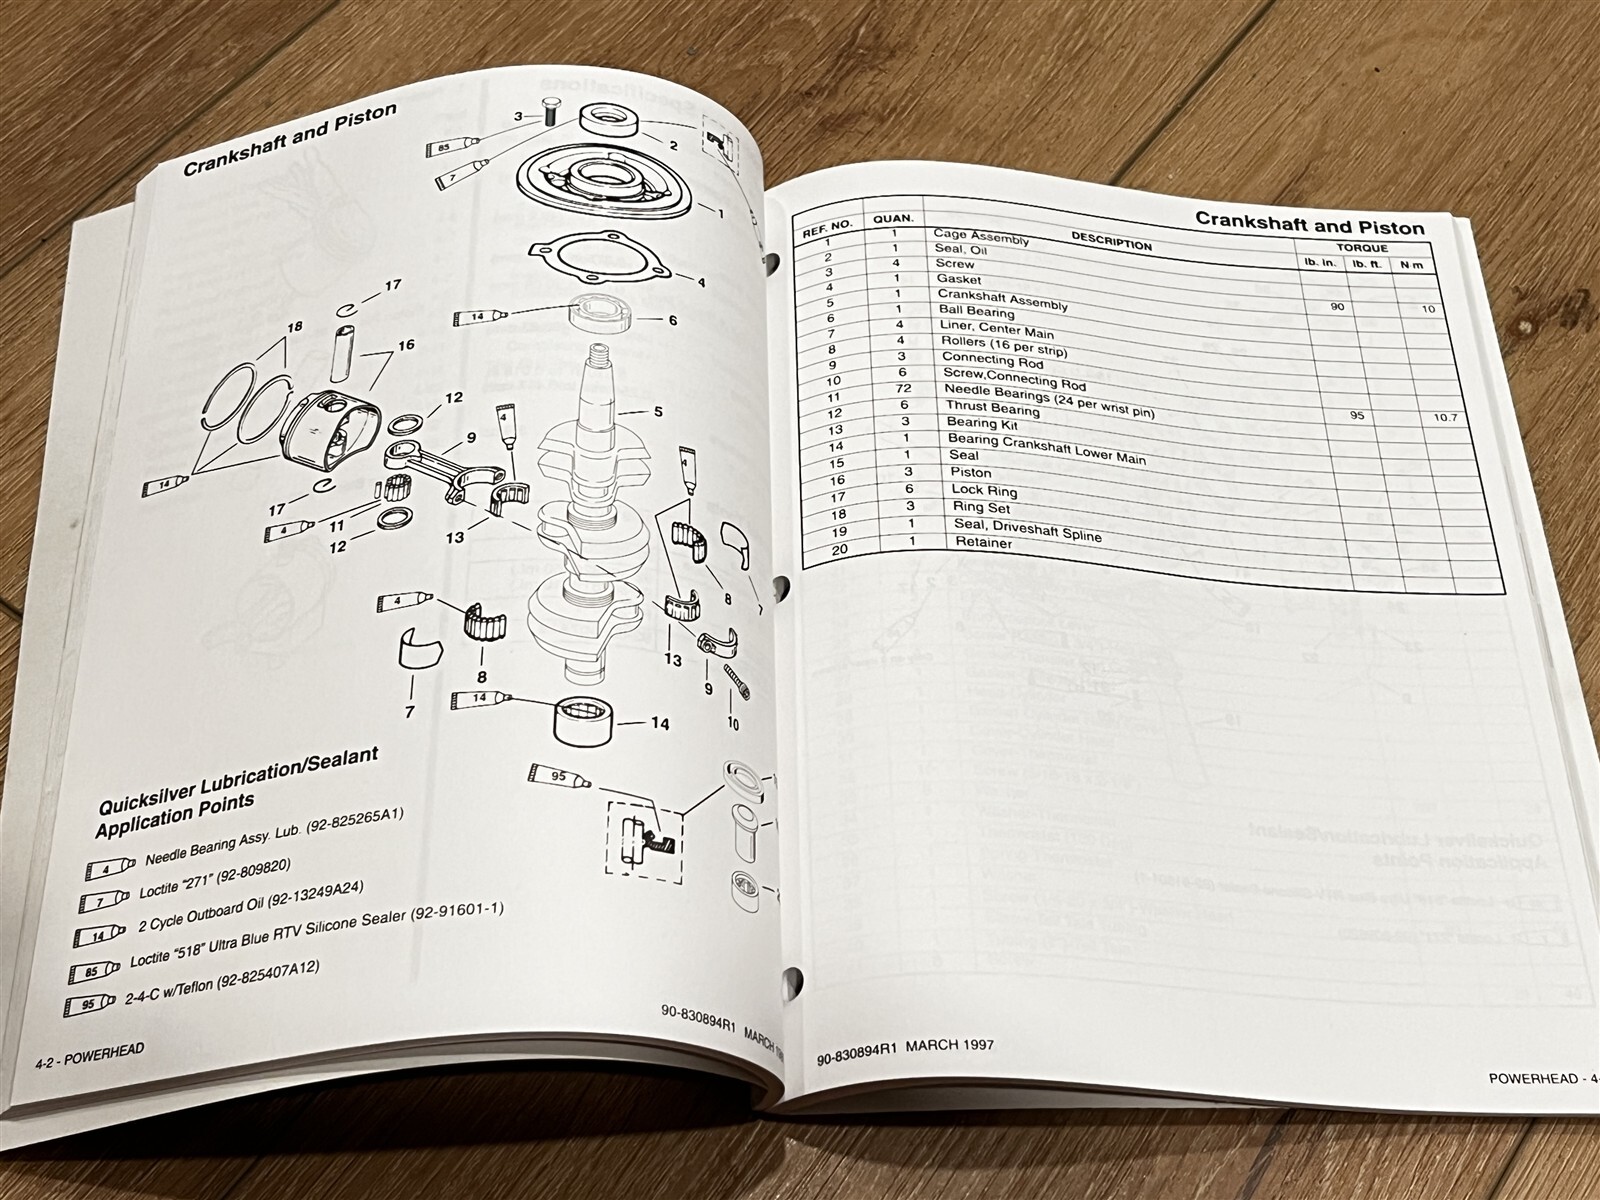 Crankshaft and Piston
3
85
7
2
1
4
17
18
14
6
16
12
9
4
5
4
14
17
4
11
12
13
8
7
4
13
9
8
7
14
14
10
95
Quicksilver Lubrication/Sealant
Application Points
4 Needle Bearing Assy. Lub. (92-825265A1)
7 Loctite "271" (92-809820)
14 2 Cycle Outboard Oil (92-13249A24)
85 Loctite "518" Ultra Blue RTV Silicone Sealer (92-91601-1)
95 2-4-C w/Teflon (92-825407A12)
4-2 - POWERHEAD
90-830894R1 MARCH
Crankshaft and Piston
REF. NO. QUAN. DESCRIPTION TORQUE
lb. in. lb. ft. N·m
1 1 Cage Assembly
2 1 Seal, Oil
3 4 Screw 90 10
4 1 Gasket
5 1 Crankshaft Assembly
6 1 Ball Bearing
7 4 Liner, Center Main
8 4 Rollers (16 per strip)
9 3 Connecting Rod
10 6 Screw,Connecting Rod 95 10.7
11 72 Needle Bearings (24 per wrist pin)
12 6 Thrust Bearing
13 3 Bearing Kit
14 1 Bearing Crankshaft Lower Main
15 1 Seal
16 3 Piston
17 6 Lock Ring
18 3 Ring Set
19 1 Seal, Driveshaft Spline
20 1 Retainer
90-830894R1 MARCH 1997
POWERHEAD - 4-